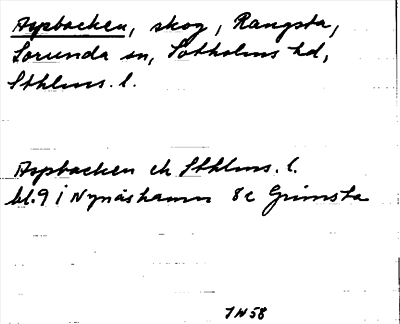 Aspbacken, skog, Rangsta,
Sorunda sn, Sotholms hd,
Sthlms. l.
Aspbacken ek Sthlms. l.
bl. 9 I Nynäshamn 8c Grimsta
JN58